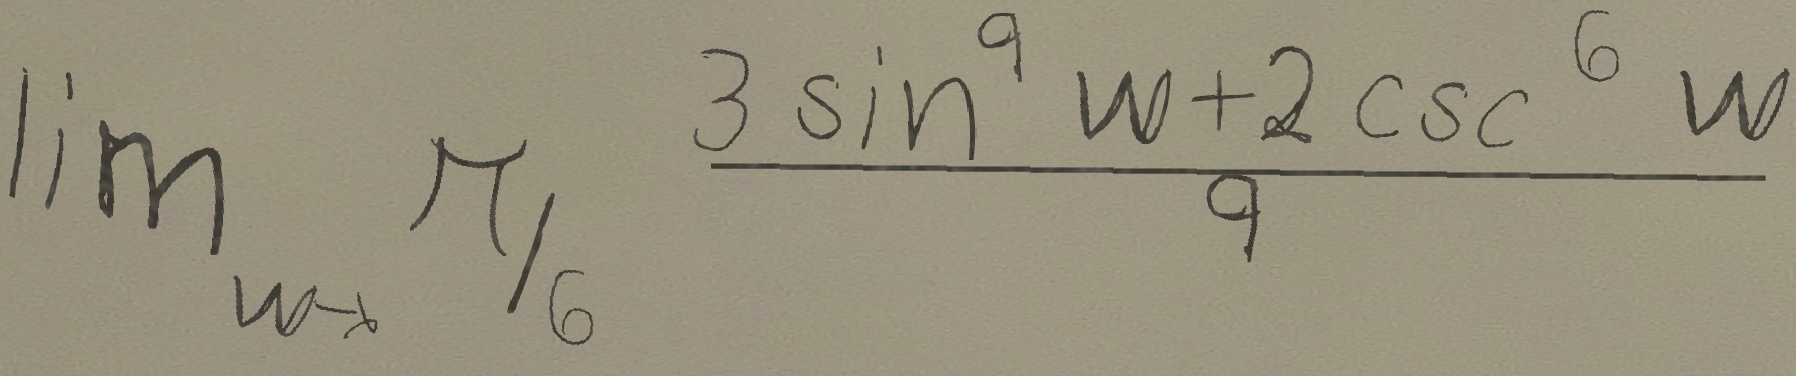 \lim_{w \to \pi/6} \frac{3 \sin^9 w + 2 \csc^6 w}{9}